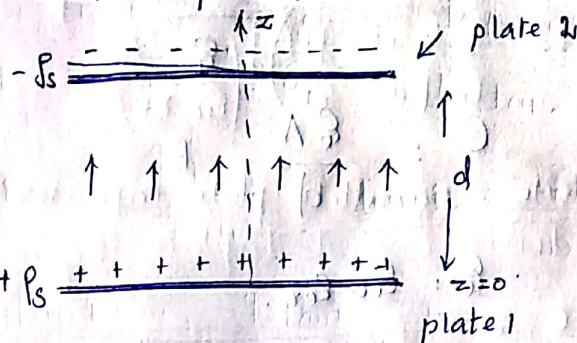 z
plate 2
- - - - - - - -
- ρs
d
+ + + + + + + + +
+ ρs
z=0
plate 1